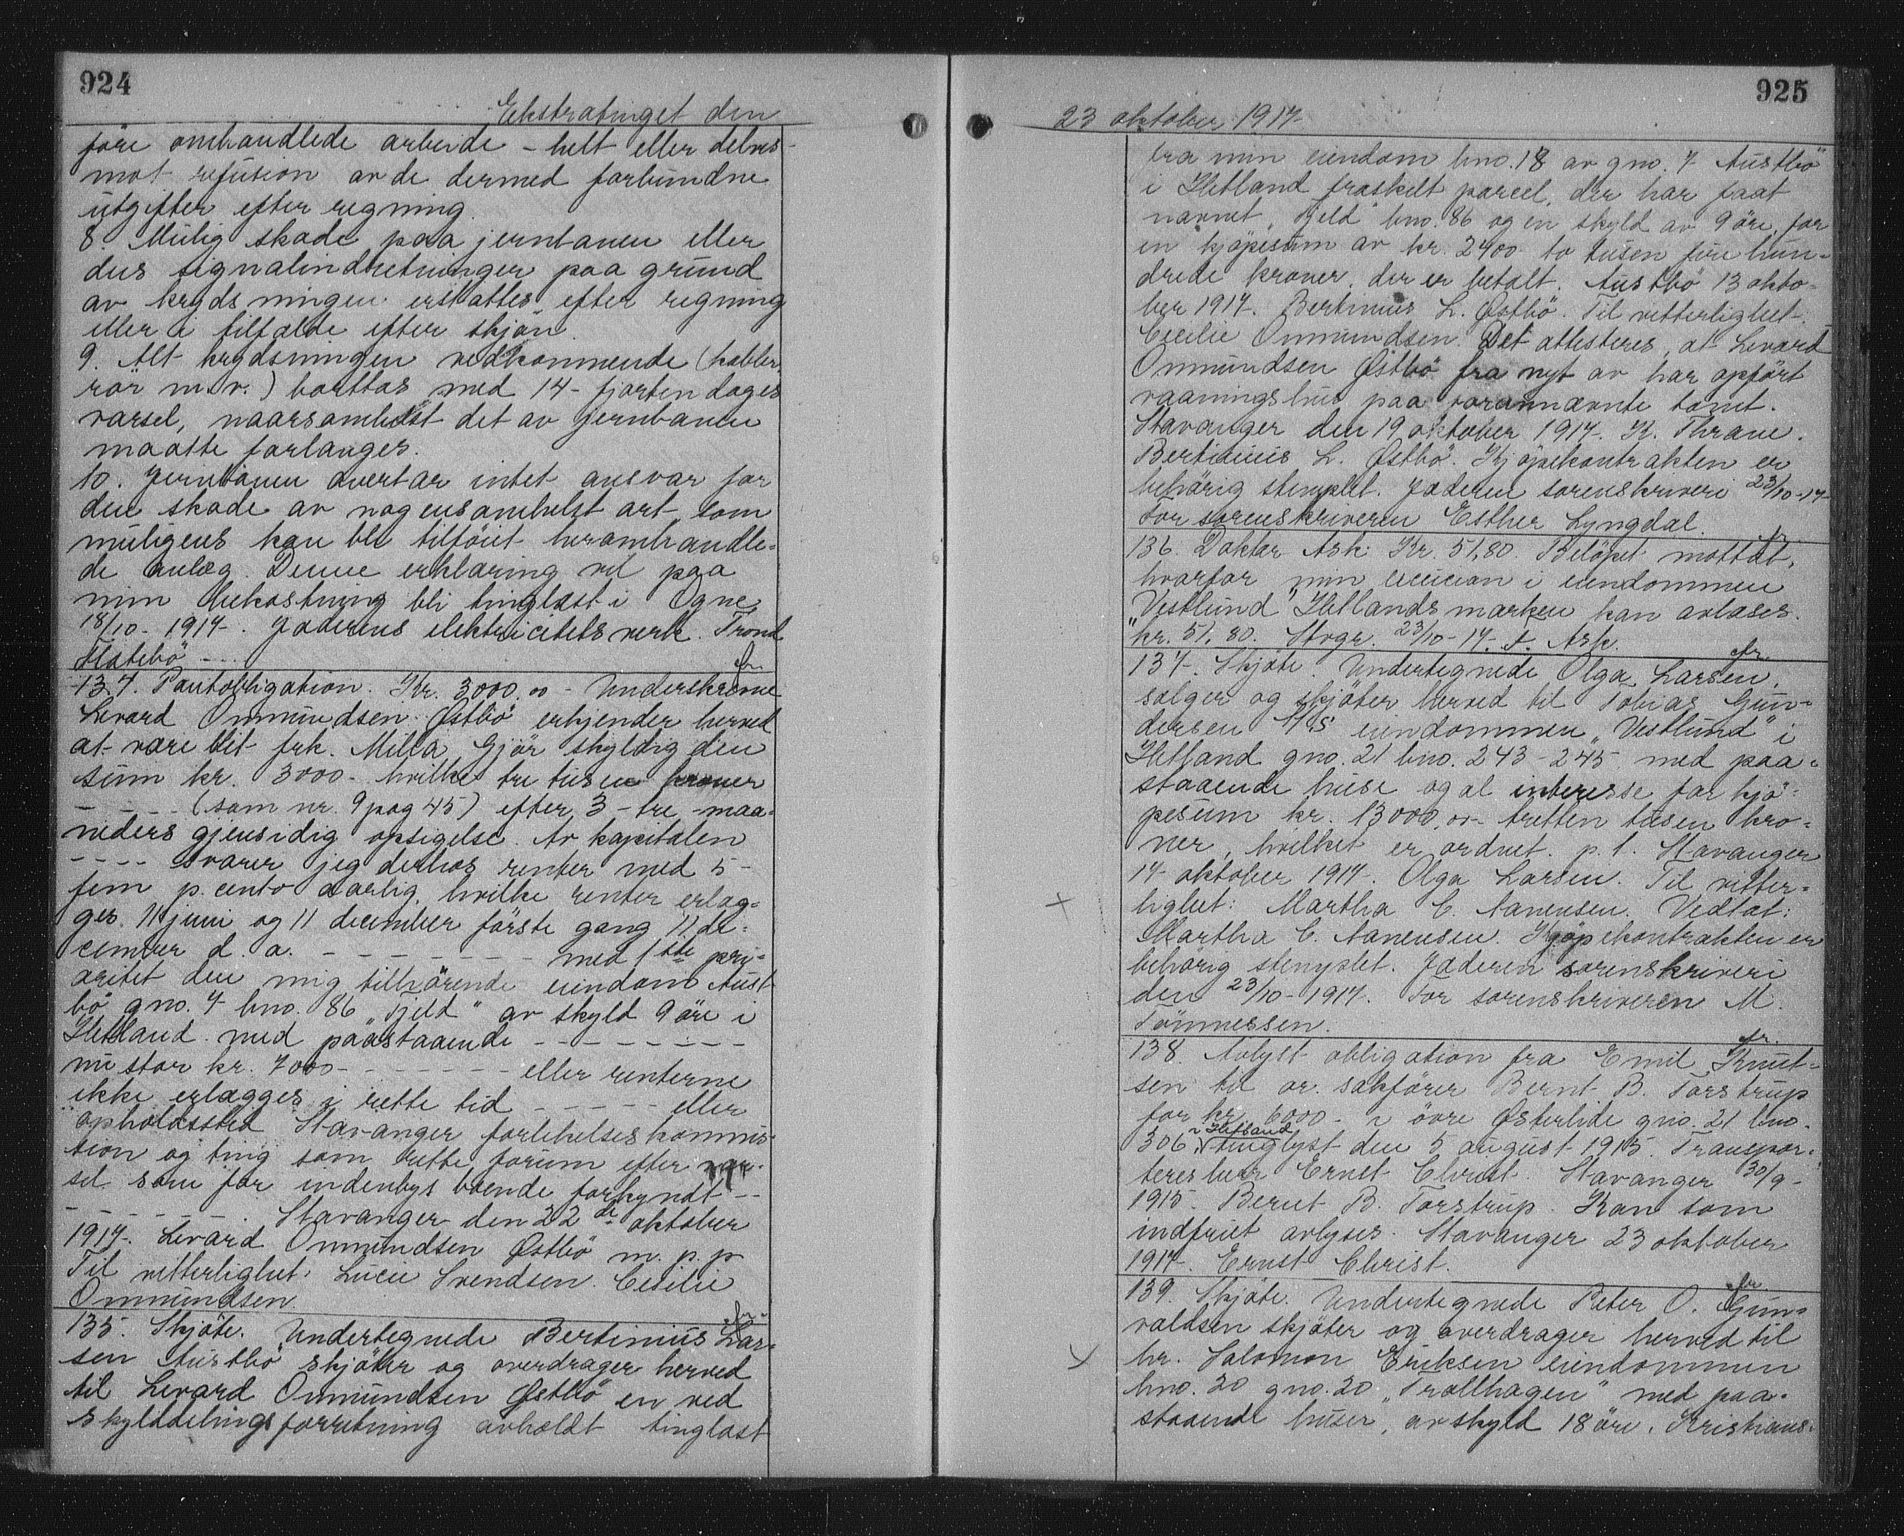 924
Ekstratinget den
före omhandlede arbeide – helt eller delvis –
mot refusion av de dermed forbundne
utgifter efter regning.
8. Mulig skade paa jernbanen eller
dens signalindretninger paa grund
av krydsningen erstattes efter regning
eller i tilfælde efter skjön.
9. Alt krydsningen vedkommende (kabler,
rör m.v.) borttas med 14 – fjorten dages
varsel, naarsomhelst det av jernbanen
maatte forlanges.
10. Jernbanen overtar intet ansvar for
den skade av nogensomhelst art, som
muligens kan bli tilföiet heromhandle-
de anlæg. Denne erklæring vil paa
min bekostning bli tinglæst i Ogne
18/10 – 1917. Jæderens elektricitetsverk. Trond
Flatebö ---
fr.
134. Pantobligation. Kr. 3000.00 – Underskrevne
Levard Ommundsen Østbö erkjender herved
at være blit frk. Milla Gjör skyldig den
sum kr. 3000 – hvilke tre tusen kroner
---- (som nr. 9 pag 45) efter 3 – tre – maa-
neders gjensidig opsigelse. Av kapitalen
---- svarer jeg derhos renter med 5 –
fem p. cento aarlig, hvilke renter erlæg-
ges 11 juni og 11 december förste gang 11 de-
cember d. a. ------- med 1ste pri-
oritet den mig tilhörende eiendom Aust-
bö gno. 7 bno. 86 "Fjeld" av skyld 9 öre i
Hetland med paastaaende --------
nu stor kr. 7000 ------- eller renterne
ikke erlægges i rette tid ----- eller
opholdssted Stavanger forlikelseskommis-
sion og ting som rette forum efter var-
sel som for indenbys boende forkyndt --
------- Stavanger den 22de oktober
1917. Levard Ommundsen Østbö m. p. p
Til vitterlighet: Lucie Svendsen. Cecilie
Ommundsen.
fr.
135. Skjöte. Undertegnede Bertinius Lar-
sen Austbö skjöter og overdrager herved
til Levard Ommundsen Østbö en ved
skylddelingsforretning avholdt tinglæst
925
23 oktober 1917
fra min eiendom bno. 18 av gno. 7 Austbö
i Hetland fraskilt parcel, der har faat
navnet "Fjeld" bno. 86 og en skyld av 9 öre, for
en kjöpesum av kr. 2400 – to tusen fire hun-
drede kroner, der er betalt. Austbö 13 okto-
ber 1917. Bertinius L. Østbö. Til vitterlighet:
Cecilie Ommundsen. Det attesteres, at Levard
Ommundsen Østbö fra nyt av har opfört
vaaningshus paa forannævnte tomt.
Stavanger den 19 oktober 1917. K. Thrane.
Bertinius L. Østbö. Kjöpekontrakten er
behörig stemplet. Jæderen sorenskriveri 23/10-17
For sorenskriveren Esther Lyngdal.
fr.
136. Doktor Ask: Kr. 51,80. Belöpet mottat,
hvorfor min execucion i eiendommen
"Vestlund" Hetlandsmarken kan avlæses.
kr. 51,80. Stvgr. 23/10-17. J. Ask.
fr.
137. Skjöte. Undertegnede Olga Larsen,
sælger og skjöter herved til Tobias Gun-
dersen A/S eiendommen "Vestlund" i
Hetland gno. 21 bno. 243 – 245 med paa-
staaende huse og al interesse for kjö-
pesum kr. 13000.00 – tretten tusen kro-
ner, hvilket er ordnet. p. t. Stavanger
17 oktober 1917. Olga Larsen. Til vitter-
lighet: Martha C. Aanensen. Vedtat:
Martha C. Aanensen. Kjöpekontrakten er
behörig stemplet. Jæderen sorenskriveri
den 23/10-1917. For sorenskriveren M.
Tönnessen.
fr.
138. Avlyst obligation fra Emil Knut-
sen til or. sakförer Bernt B. Torstrup
for kr. 6000 – i övre Østerlide gno. 21 bno.
306 i Hetland tinglyst den 5 august 1915. Transpor-
teres herr Ernst Christ. Stavanger 30/9 –
1915. Bernt B. Torstrup. Kan som
indfriet avlyses. Stavanger 23 oktober
1917. Ernst Christ.
fr.
139. Skjöte. Undertegnede Peter O. Gun-
valdsen skjöter og overdrager herved til
hr. Salomon Eriksen eiendommen
bno. 20 gno. 20 "Trollhagen" med paa-
staaende huser, av skyld 18 öre, Kristians-